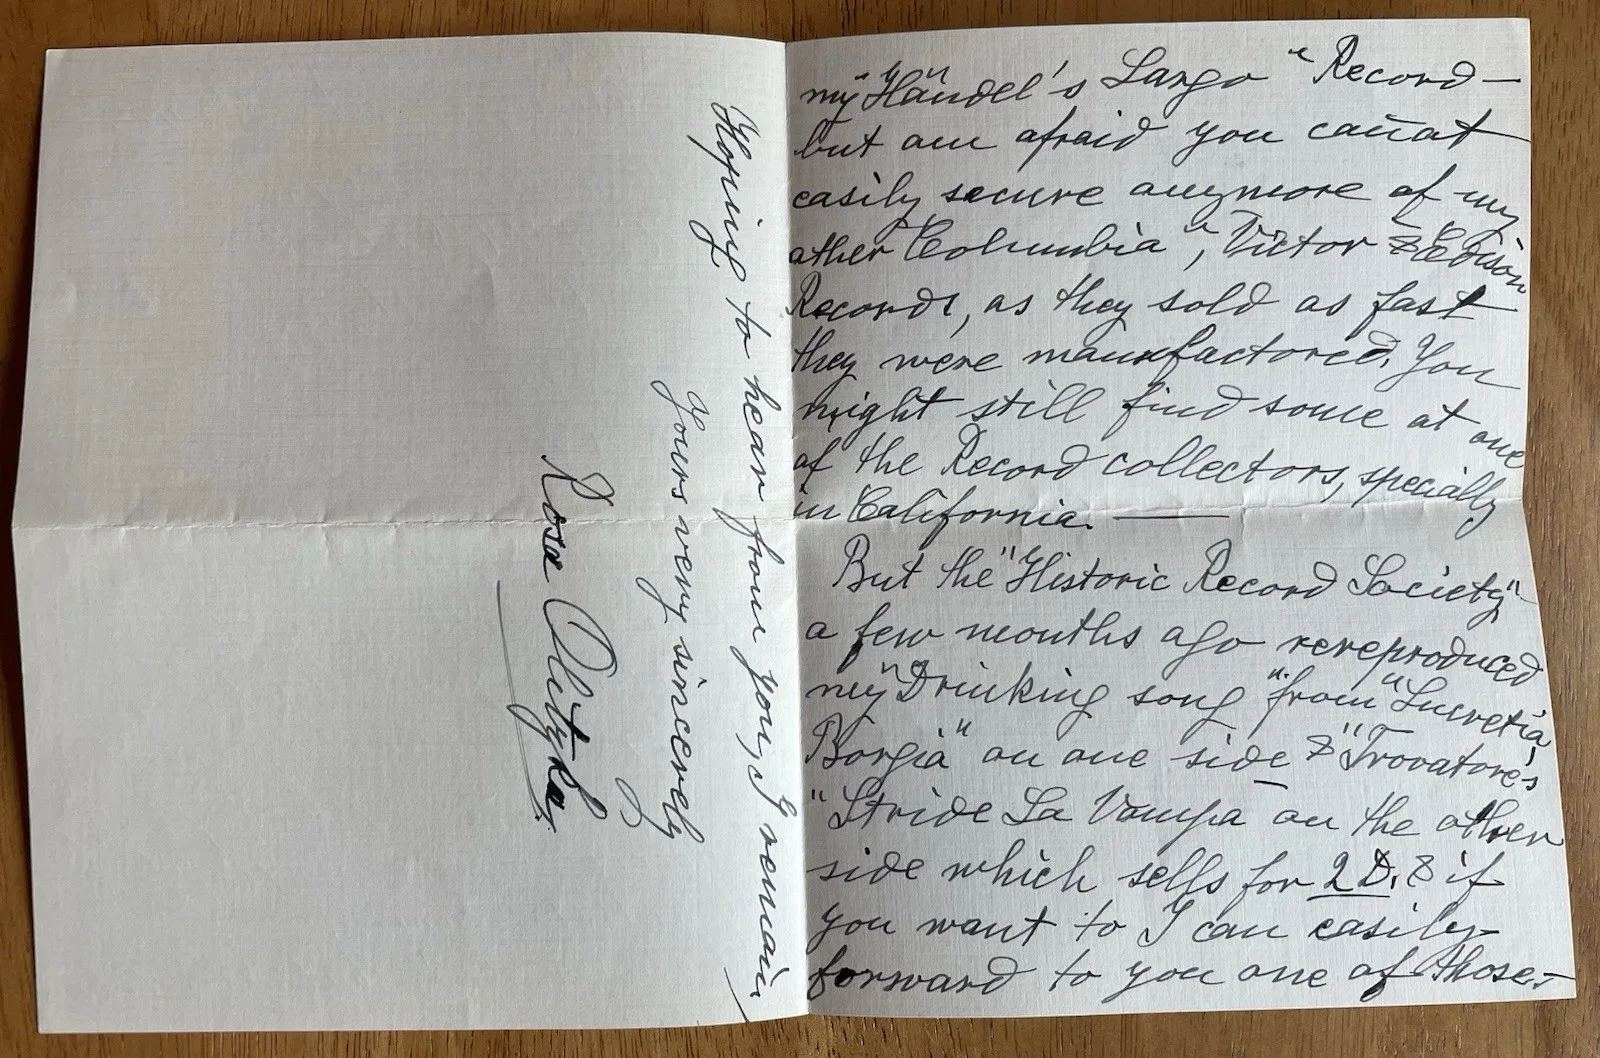 my "Händel's Largo" Record—
but am afraid you cañot
easily secure anymore of my
other "Columbia", Victor & Edison
Records, as they sold as fast
they were manufactored. You
might still find some at one
of the Record collectors, specially
in California. ——
But the "Historic Record Society"
a few months ago rereproduced
my "Drinking song" from "Lucretia
Borgia" on one side & "Trovatore's
"Stride La Vampa on the other
side which sells for 2 D. & if
you want to I can easily-
forward to you one of those.-
Hoping to hear from you, I remain
Yours very sincerely
Rosa Olitzka.